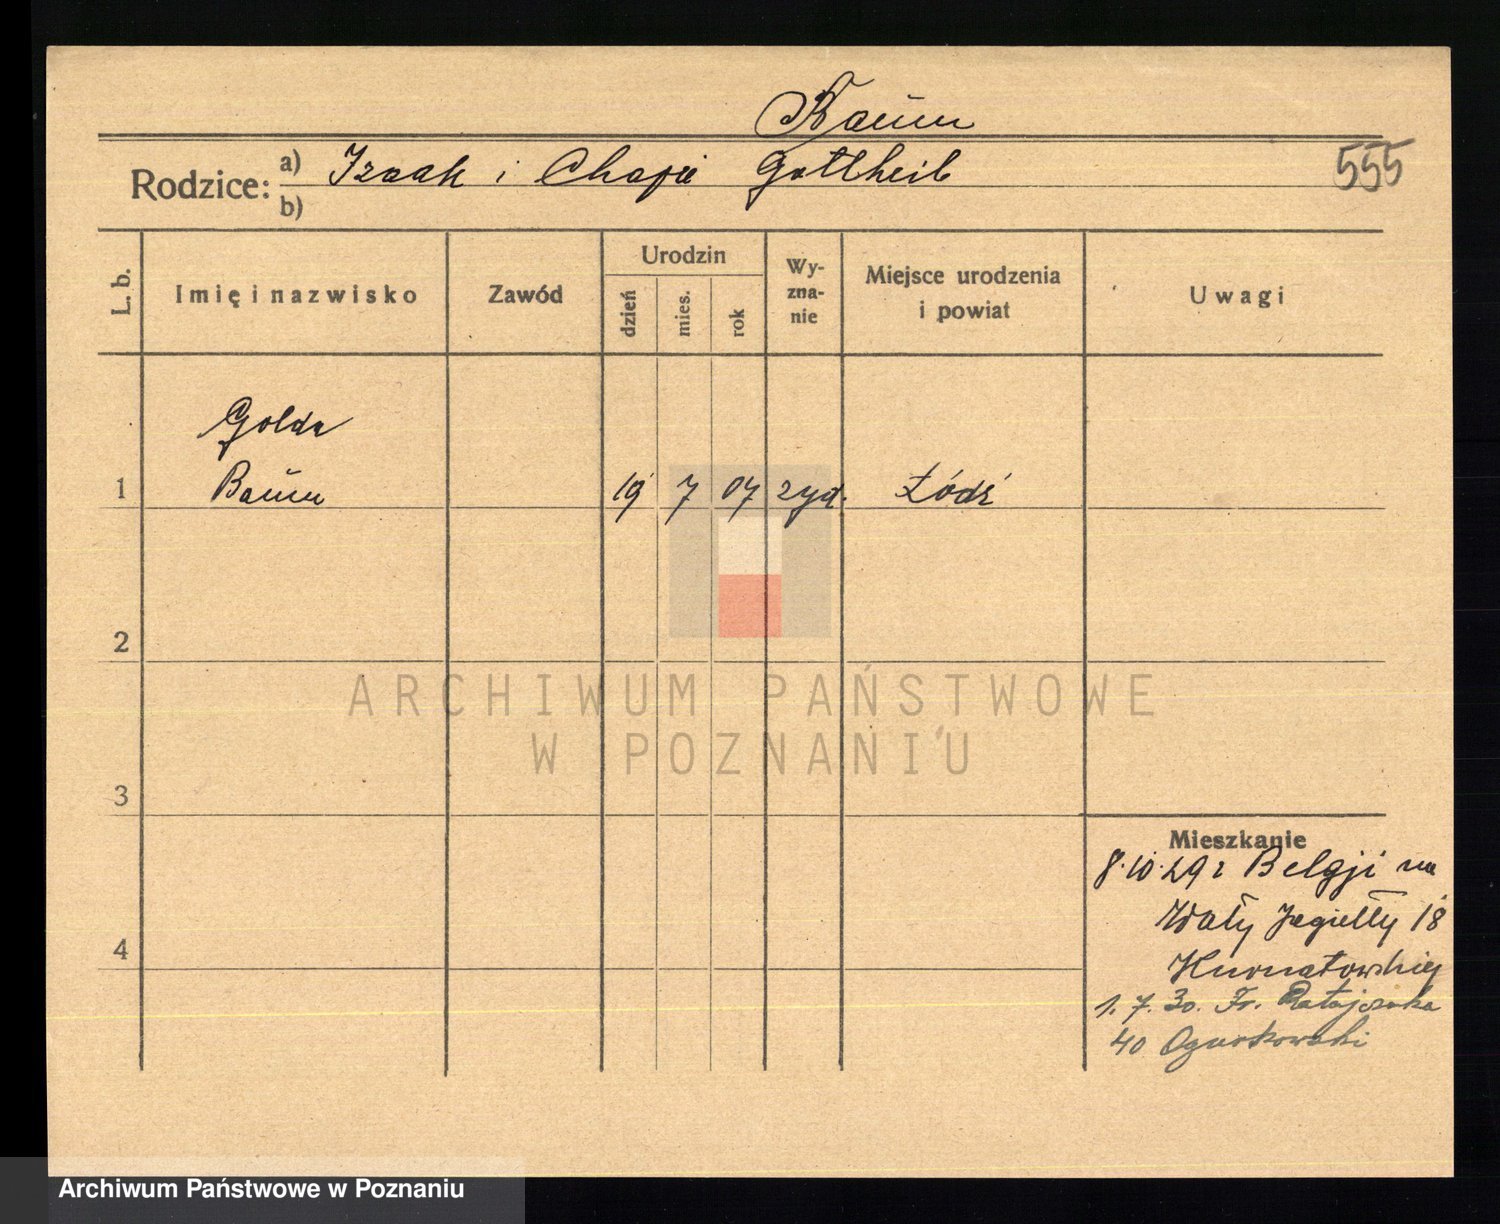 Baum
Rodzice: a) Izaak i Chaja Gottheib
b)
555
L. b.
Imię i nazwisko
Zawód
Urodzin
dzień
mies.
rok
Wy-
zna-
nie
Miejsce urodzenia
i powiat
Uwagi
Golda
1 Baum 19 7 07 żyd. Łódź
2
3
4
ARCHIWUM PAŃSTWOWE
W POZNANIU
Mieszkanie
8.10.29 z Belgji na
Wały Jagiełły 18
Kurnatowskiej
1.7.30. Fr. Ratajczaka
40 Ogurkowski
Archiwum Państwowe w Poznaniu